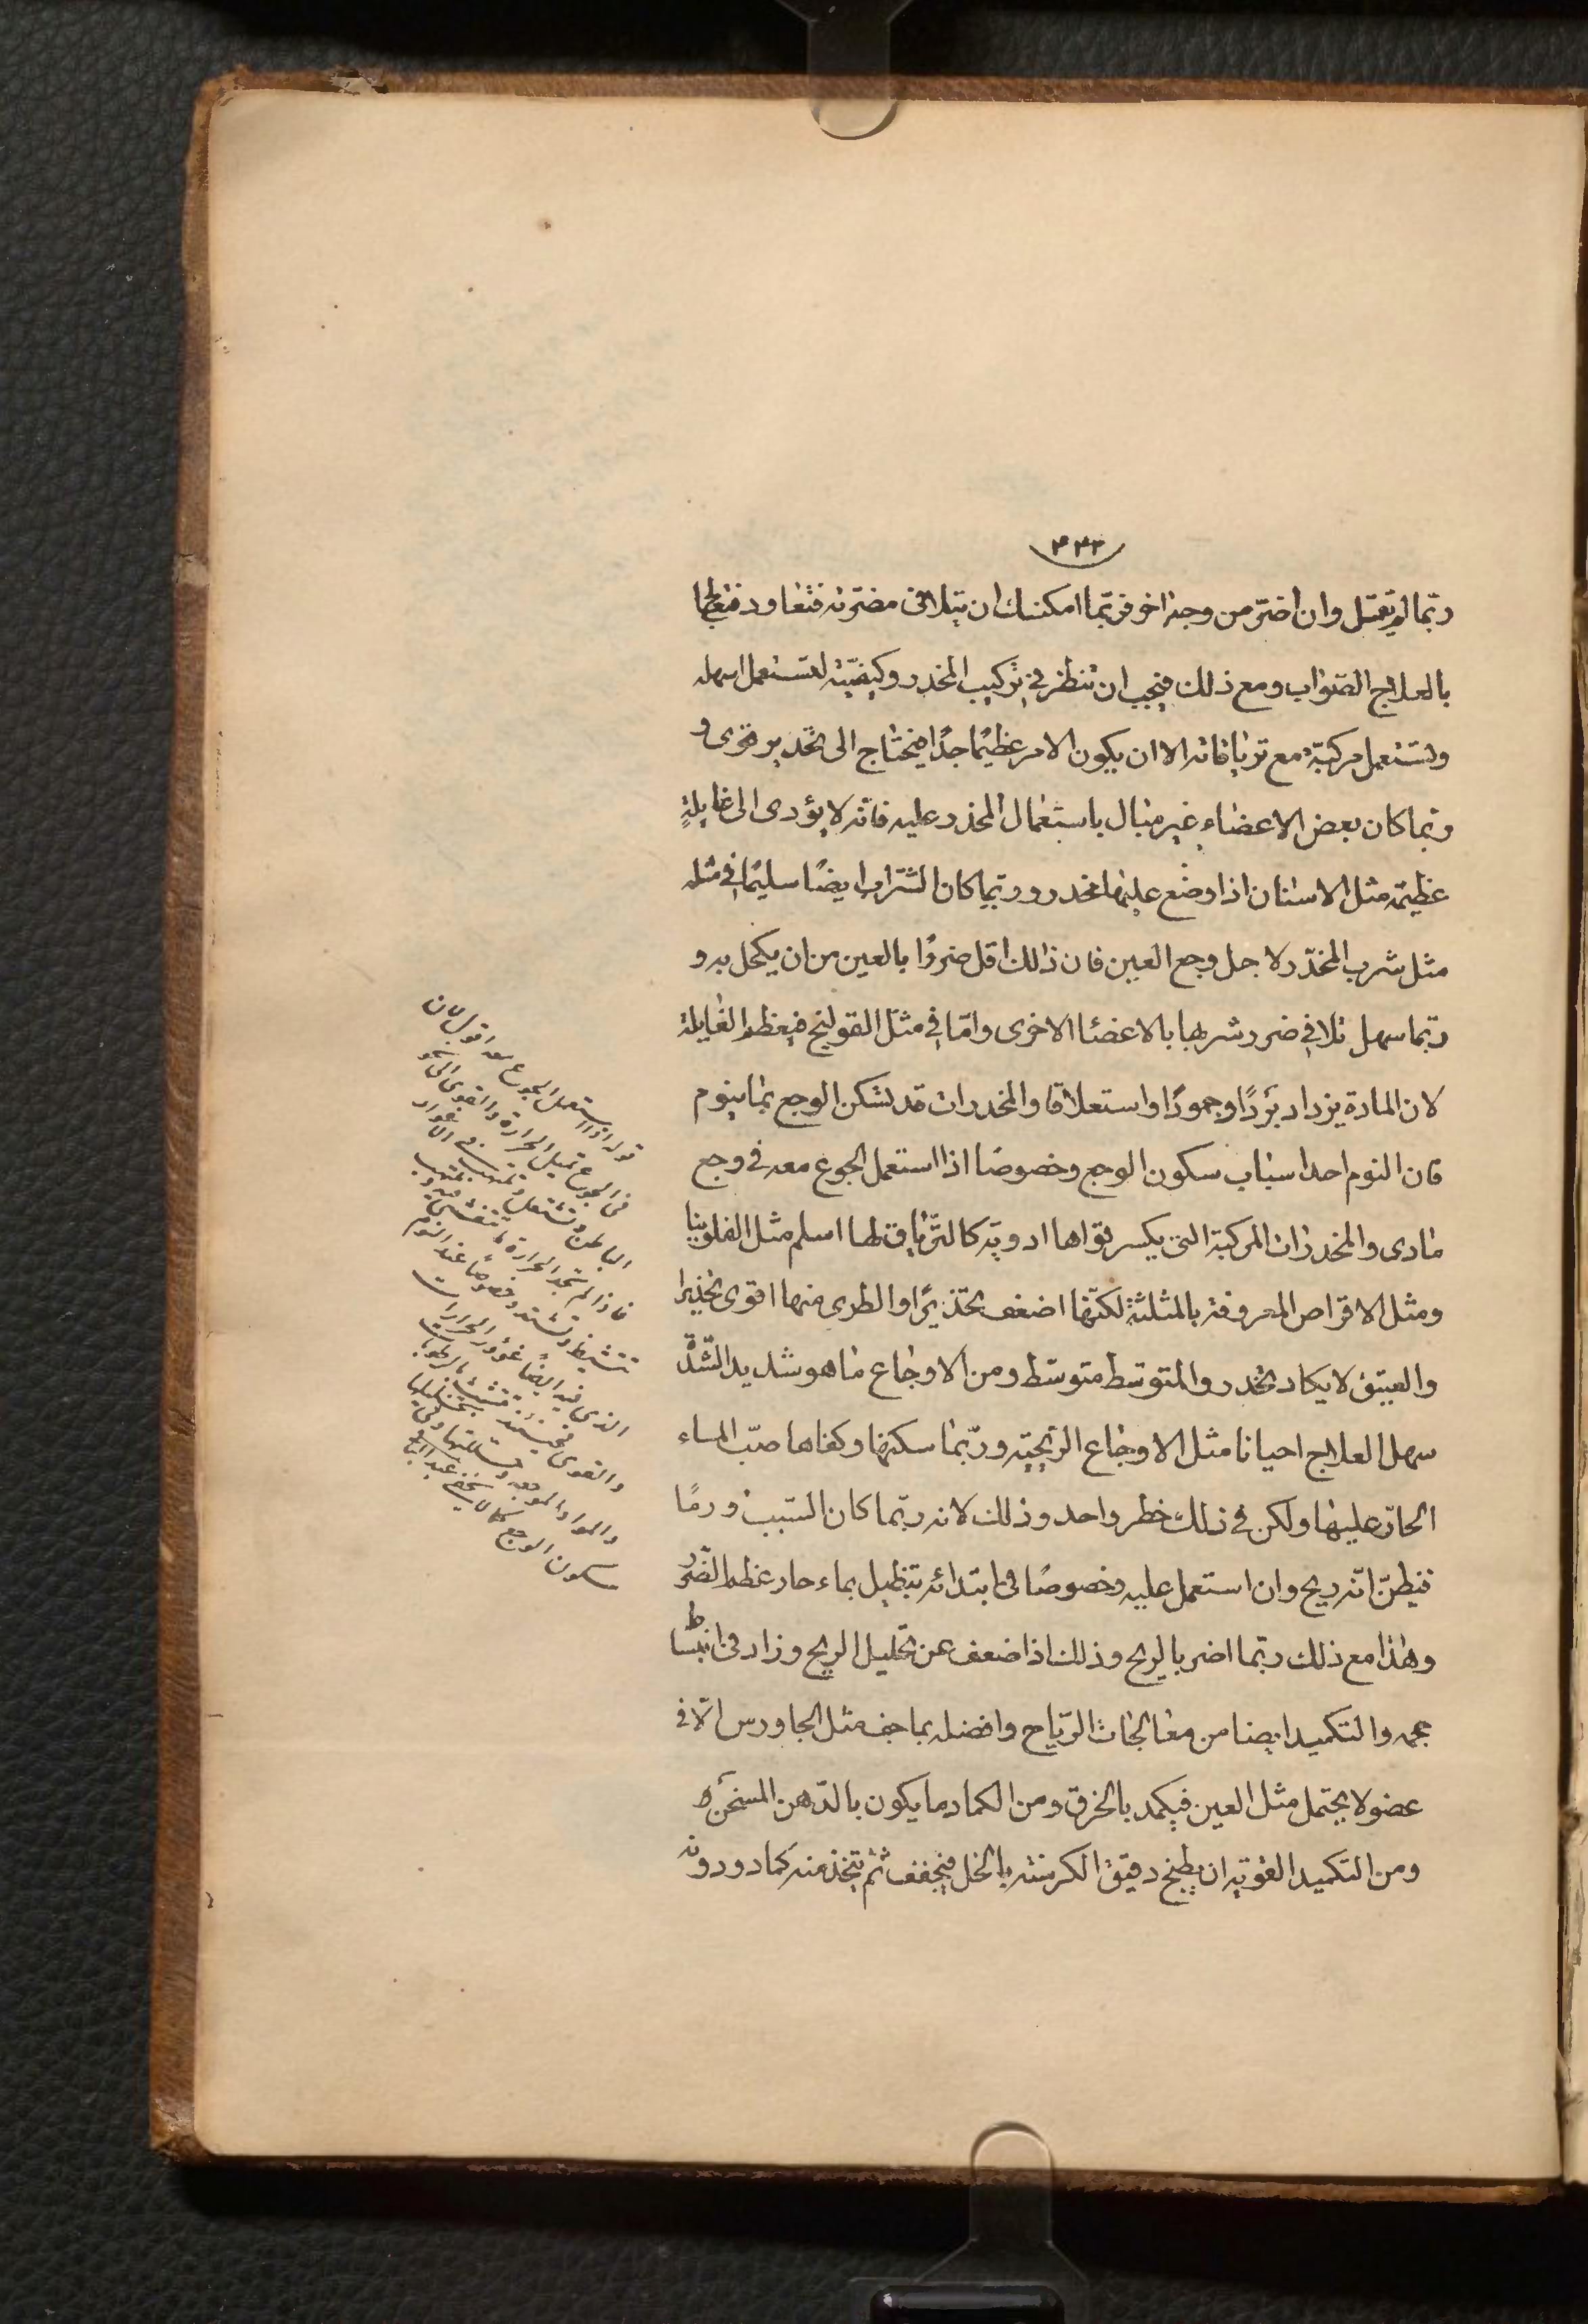 ٤٣٣
ربّما لم تقتل وان اضرّ من وجه اخر فربّما امكنك ان يتلافى مضرّته فتعاود فتعالجها
بالعلاج الصّواب ومع ذلك فيجب ان تنظر في تركيب المخدر وكيفيّته لتستعمل اسهله
وتستعمل مركبّه مع ترياقاته الا ان يكون الامر عظيمًا جدًا فيحتاج الى تخدير قوى و
ربما كان بعض الاعضاء غير مبال باستعمال المخدر عليه فانّه لا يؤدى الى غايلةٍ
عظيمة مثل الاسنان اذا وضع عليها مخدر وربّما كان الشّراب ايضًا سليمًا في مثله
مثل شرب المخدّر لاجل وجع العين فان ذالك اقل ضررًا بالعين من ان يكحل به و
ربّما سهل تلافي ضرر شربها بالاعضاء الاخرى وامّا في مثل القولنج فيعظم الغايلة
لان المادة يزداد بردًا وجمودًا واستغلاقا والمخدرات قد تسكن الوجع بما ينوم
فان النوم احد اسباب سكون الوجع وخصوصا اذا استعمل الجوع معه في وجع
مادى والمخدرات المركبة التى يكسر قواها ادوية كالترّياق لها اسلم مثل الفلونيا
ومثل الاقراص المعروفة بالمثلثة لكنّها اضعف تخديرًا والطرى منها اقوى تخديرا
والعيتق لا يكاد يخدر والمتوسّط متوسّط ومن الاوجاع ما هو شديد الشّدّة
سهل العلاج احيانا مثل الاوجاع الريحيّة وربّما سكنها وكفاها صبّ الماء
الحارّ عليها ولكن في ذلك خطر واحد وذلك لانه ربّما كان السّبب ورمًا
فيظنّ انّه ريح وان استعمل عليه وخصوصًا في ابتدائه تنطيل بماء حار عظم الضّرر
وهذا مع ذلك ربّما اضر بالريح وذلك اذا ضعف عن تحليل الريح وزاد في انبساط
حجمه والتكميد ايضا من معالجات الرّياح وافضله بما جف مثل الجاورس الّا في
عضو لا يحتمل مثل العين فيكمد بالخرق ومن الكماد ما يكون بالدّهن المسخّن
ومن التكميد القوية ان يطبخ دقيق الكرسنه بالخل فيجفف ثم يتخذ منه كماد ودونه
قوله اذا استعمل الجوع معه اقول لان
فى الجوع تميل الحرارة والقوى الى نحو
الباطن وتشتعل
فاذا لم تجد الحرارة
وتشتد وخصوصًا عند النوم
الذى فيه ايضًا غؤور الحرارات
والقوى فحينئذ
والمواد الموجعه
سكون الوجع كما لا يخفى